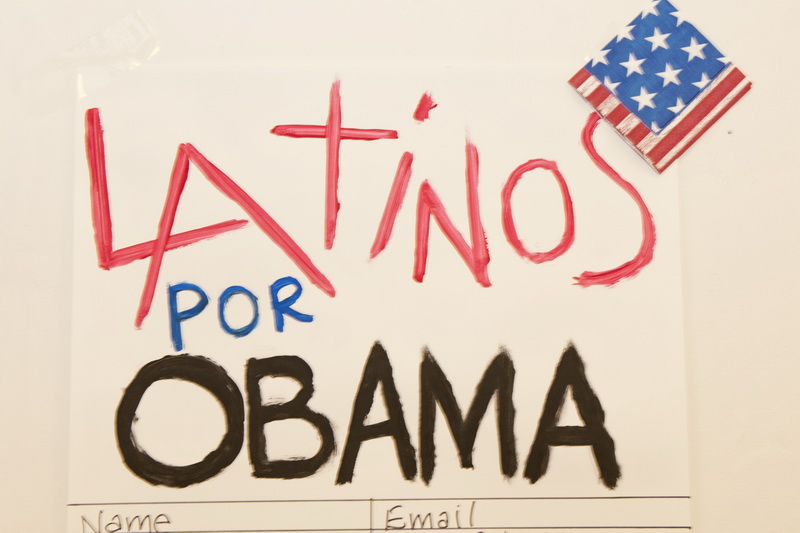 LATiNOS
POR
OBAMA
Name Email